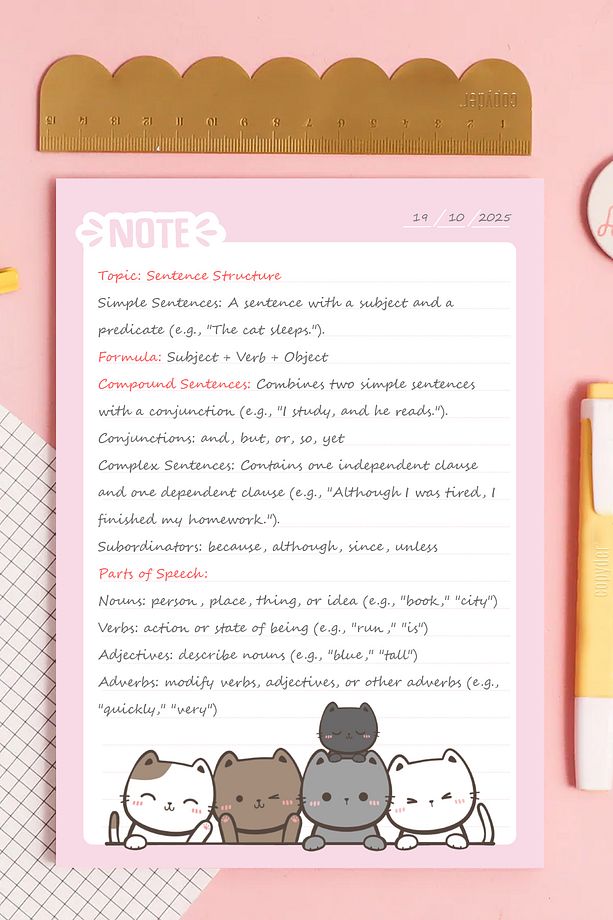 copyder
15 14 13 12 11 10 9 8 7 6 5 4 3 2 1
NOTE
19 / 10 / 2025
Topic: Sentence Structure
Simple Sentences: A sentence with a subject and a
predicate (e.g., "The cat sleeps.").
Formula: Subject + Verb + Object
Compound Sentences: Combines two simple sentences
with a conjunction (e.g., "I study, and he reads.").
Conjunctions: and, but, or, so, yet
Complex Sentences: Contains one independent clause
and one dependent clause (e.g., "Although I was tired, I
finished my homework.").
Subordinators: because, although, since, unless
Parts of Speech:
Nouns: person, place, thing, or idea (e.g., "book," "city")
Verbs: action or state of being (e.g., "run," "is")
Adjectives: describe nouns (e.g., "blue," "tall")
Adverbs: modify verbs, adjectives, or other adverbs (e.g.,
"quickly," "very")
copyder